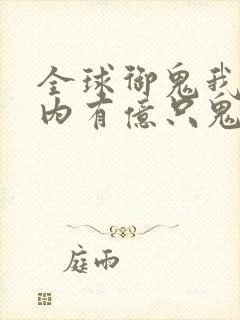 全球御鬼我
内有億只鬼
庭雨